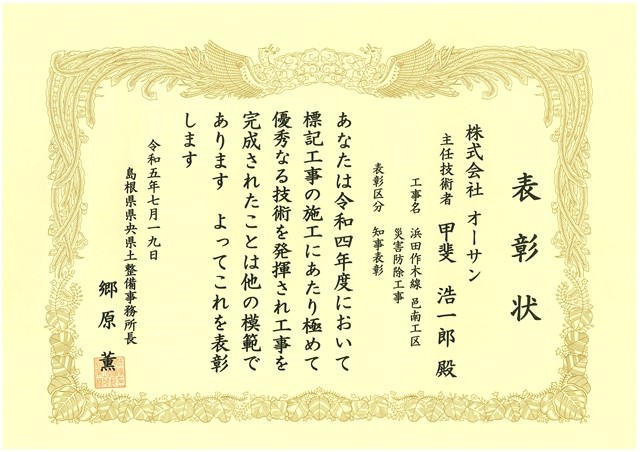 表彰状
株式会社 オーサン
主任技術者 甲斐 浩一郎 殿
工事名 浜田作木線 邑南工区
災害防除工事
表彰区分 知事表彰
あなたは令和四年度において
標記工事の施工にあたり極めて
優秀なる技術を発揮され工事を
完成されたことは他の模範で
あります よってこれを表彰
します
令和五年七月一九日
島根県県央県土整備事務所長
郷原 薫